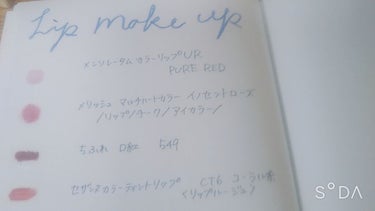 Lip make up
メンソレータム カラーリップUR
PURE RED
メリッシュ マルチハートカラー イノセントローズ
/リップ/チーク/アイカラー/
ちふれ 口紅 549
セザンヌカラーティントリップ CT6 コーラル系
SODA